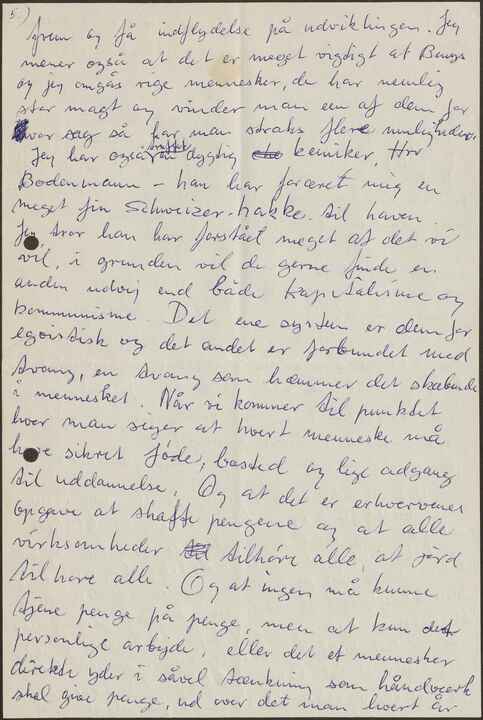 5.)
frem og få indflydelse på udviklingen. Jeg
mener også at det er meget vigtigt at Beuys
og jeg omgås rige mennesker, de har nemlig
stor magt og vinder man een af dem for
vor sag så har man straks flere muligheder.
Jeg har også truffet en dygtig kemiker, Hrr
Bodenmann – han har foræret mig en
meget fin Schweizer-hakke til haven.
Jeg tror han har forstået meget af det vi
vil, i grunden vil de gerne finde en
anden udvej end både kapitalisme og
kommunisme. Det ene system er dem for
egoistisk og det andet er forbundet med
tvang, en tvang som hæmmer det skabende
i mennesket. Når vi kommer til punktet
hvor man siger at hvert menneske må
have sikret føde, bosted og lige adgang
til uddannelse. Og at det er erhvervenes
opgave at skaffe pengene og at alle
virksomheder tilhøre alle, at jord
tilhøre alle. Og at ingen må kunne
tjene penge på penge, men at kun det
personlige arbejde, eller det et menneske
direkte yder i såvel tænkning som håndværk
skal give penge, ud over det man hvert år